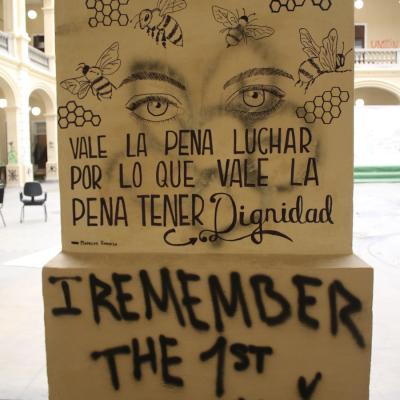 VALE LA PENA LUCHAR
POR LO QUE VALE LA
PENA TENER Dignidad
I REMEMBER
THE 1ST